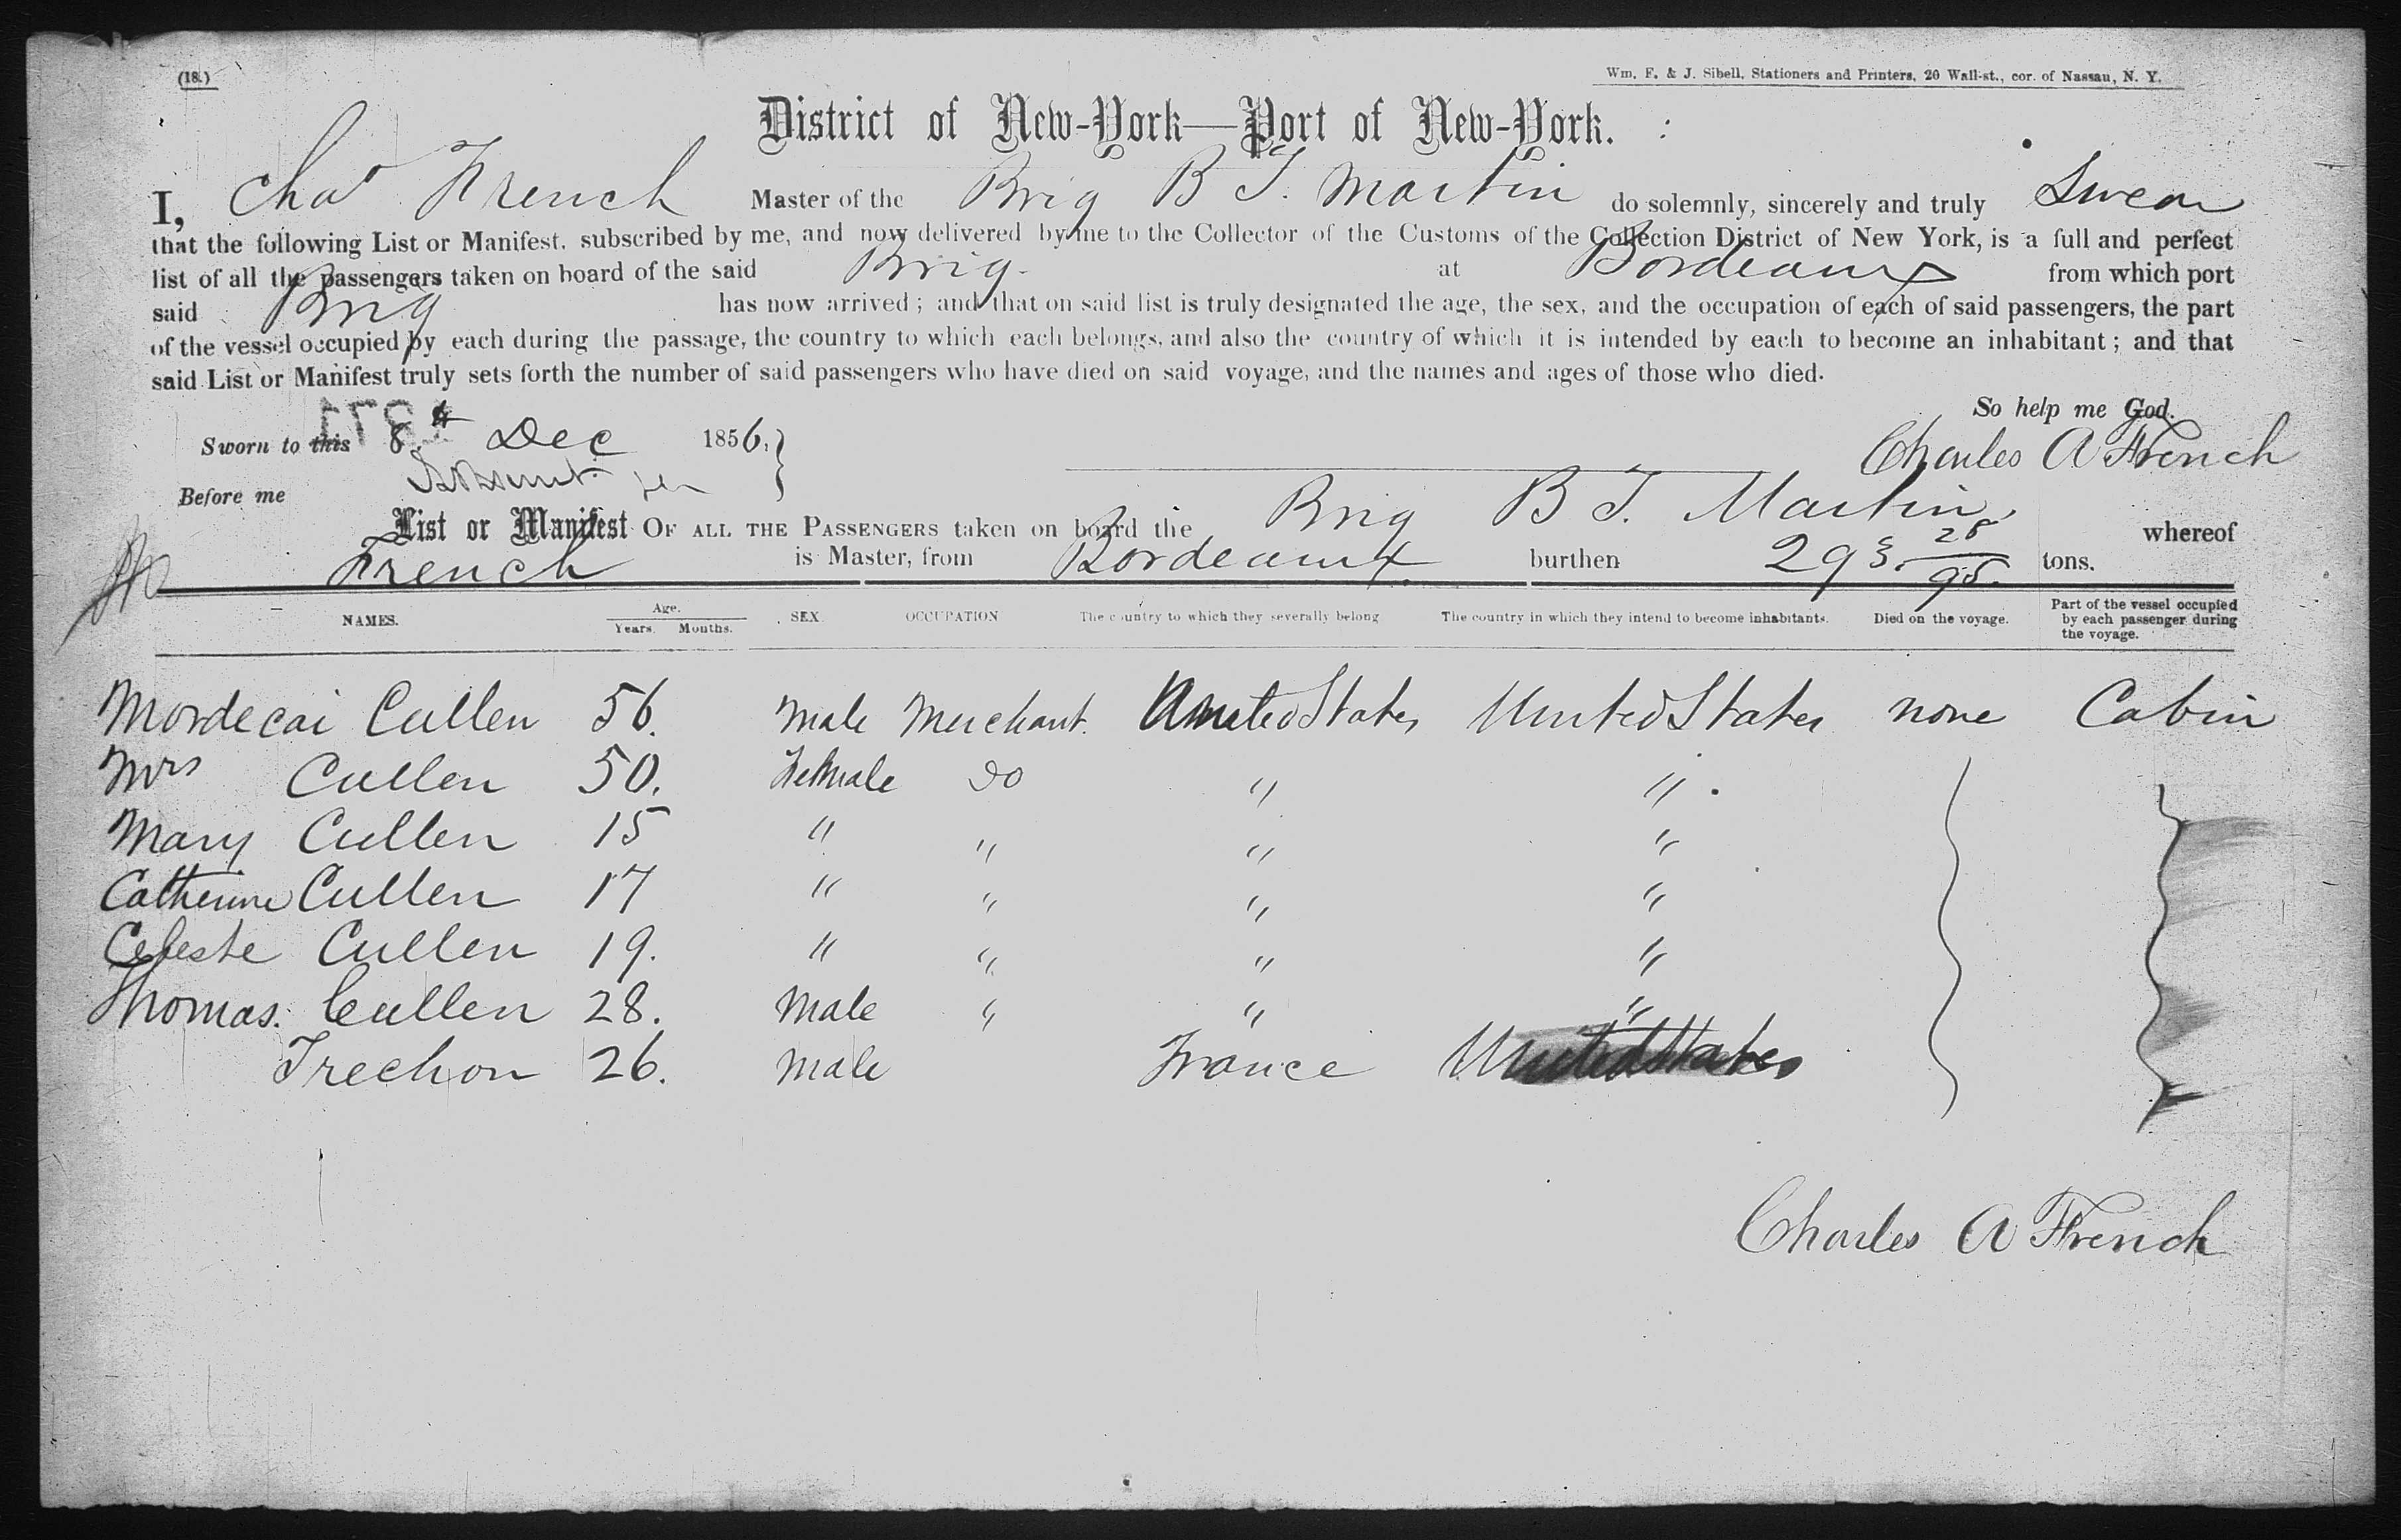 (18.)
Wm. F. & J. Sibell, Stationers and Printers, 20 Wall-st., cor. of Nassau, N. Y.
District of New-York—Port of New-York.
I, Chas French Master of the Brig B T. Martin do solemnly, sincerely and truly Swear
that the following List or Manifest, subscribed by me, and now delivered by me to the Collector of the Customs of the Collection District of New York, is a full and perfect
list of all the passengers taken on board of the said Brig at Bordeaux from which port
said Brig has now arrived; and that on said list is truly designated the age, the sex, and the occupation of each of said passengers, the part
of the vessel occupied by each during the passage, the country to which each belongs, and also the country of which it is intended by each to become an inhabitant; and that
said List or Manifest truly sets forth the number of said passengers who have died on said voyage, and the names and ages of those who died.
So help me God.
Sworn to this 8th Dec 1856,
Charles A French
Before me
List or Manifest OF ALL THE PASSENGERS taken on board the Brig B T. Martin, whereof
French is Master, from Bordeaux burthen 293. 28/95. tons.
NAMES. Age. Years. Months. SEX. OCCUPATION The country to which they severally belong The country in which they intend to become inhabitants. Died on the voyage. Part of the vessel occupied by each passenger during the voyage.
Mordecai Cullen 56. Male Merchant. United States United States none Cabin
Mrs Cullen 50. Female do " "
Mary Cullen 15 " " " "
Catherine Cullen 17 " " " "
Celeste Cullen 19. " " " "
Thomas. Cullen 28. Male " " "
Trechon 26. Male France United States
Charles A French